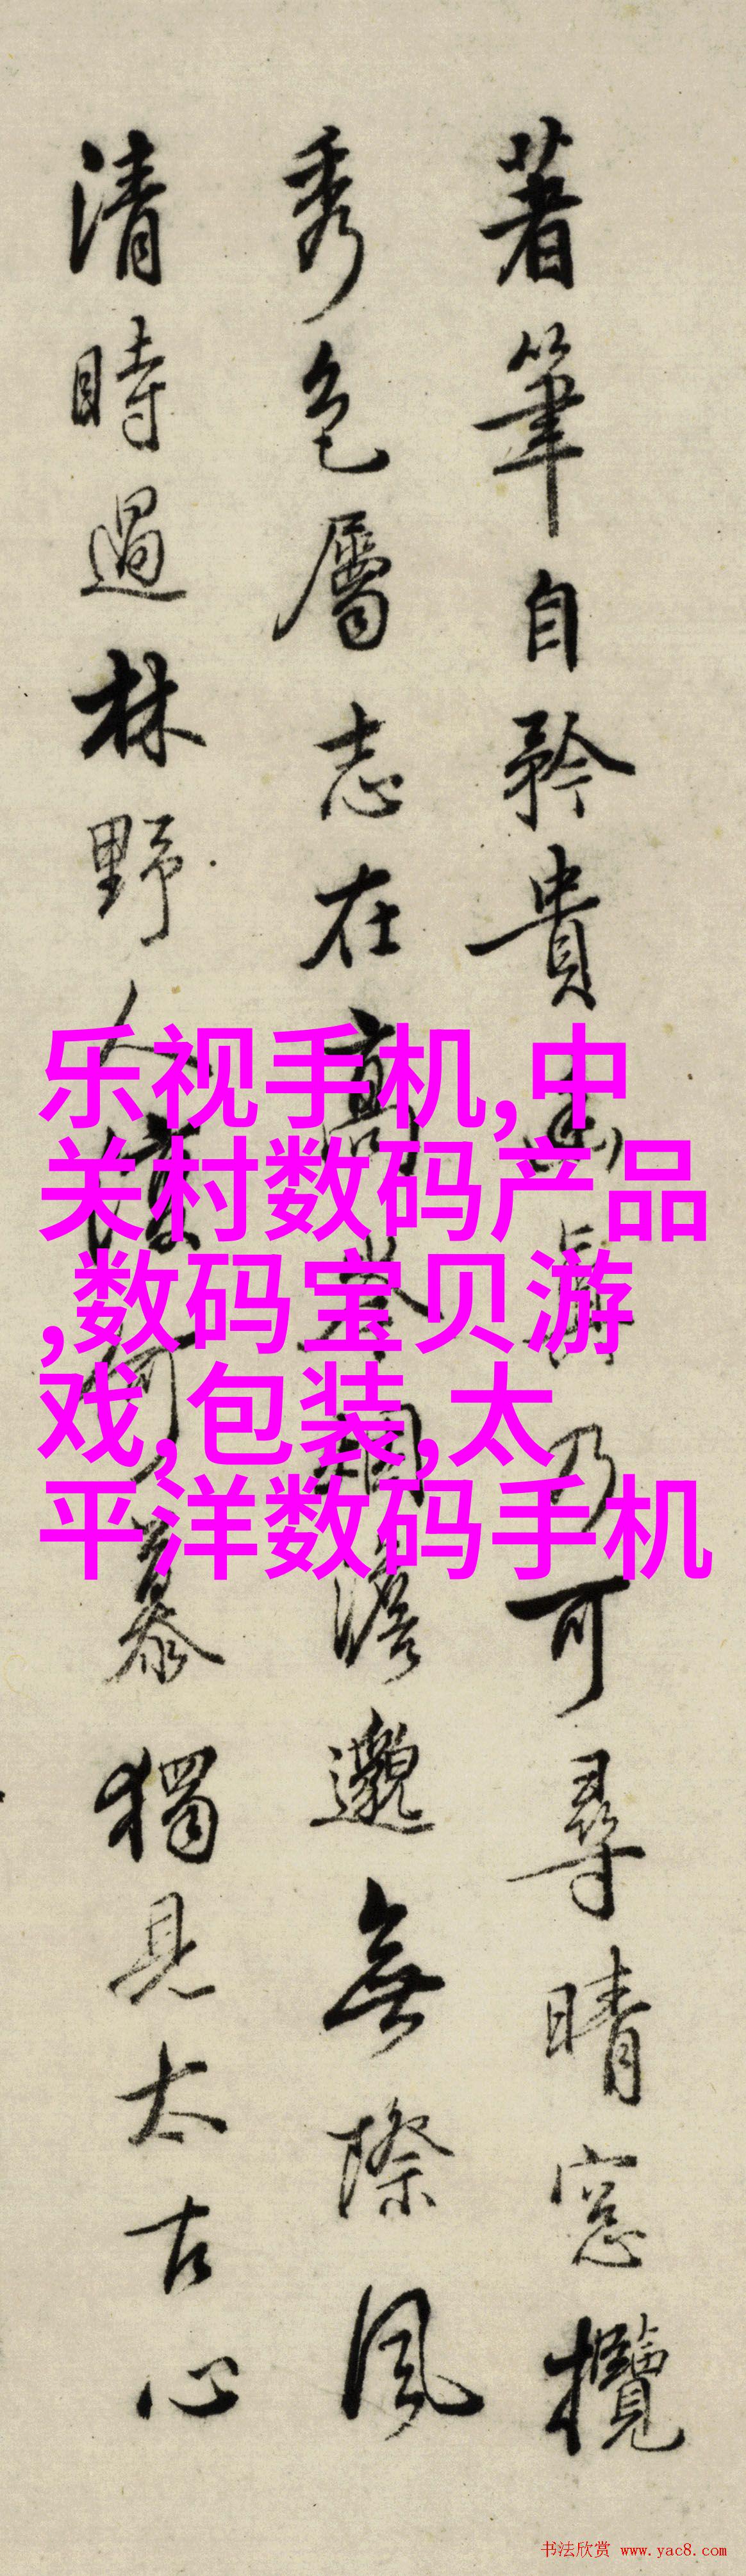 著筆自矜貴乃可尋晴窓攬
秀色屬志在高澹邈無際風
清時過林野人何慕獨見太古心
乐视手机,中
关村数码产品
,数码宝贝游
戏,包装,太
平洋数码手机
书法欣赏 www.yac8.com